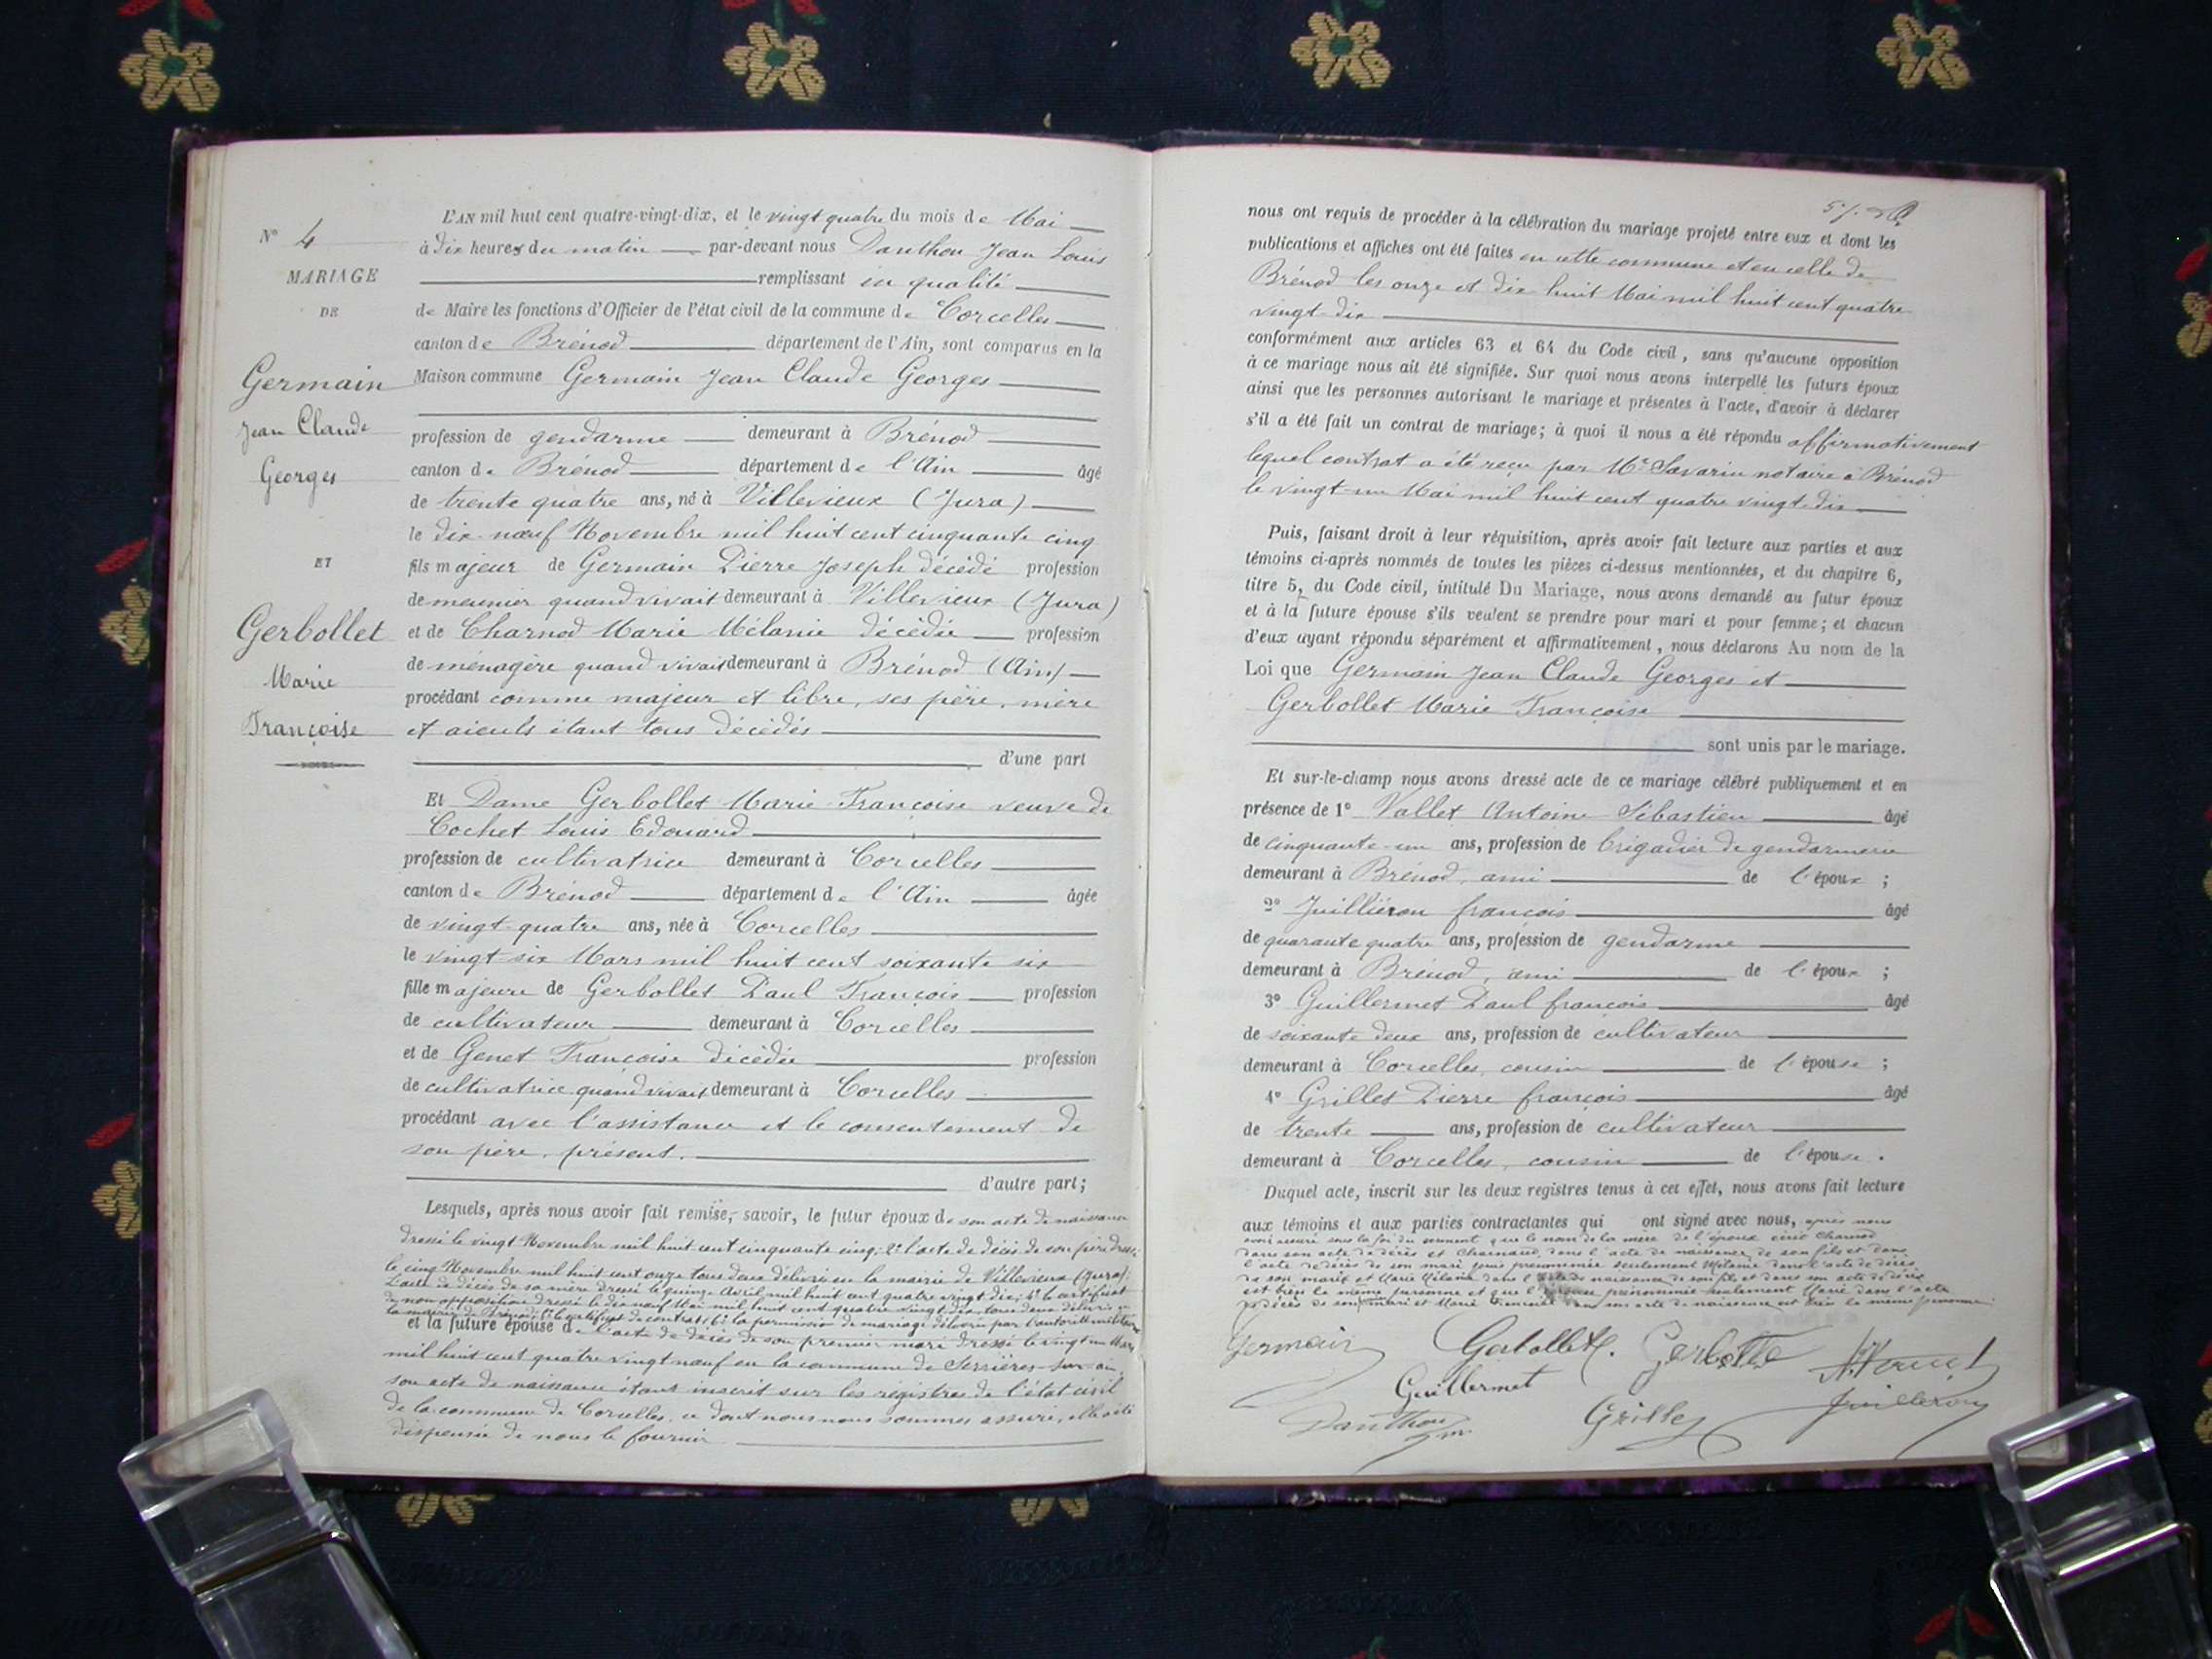 N° 4
MARIAGE
DE
Germain
Jean Claude
Georges
ET
Gerbollet
Marie
Françoise
L'AN mil huit cent quatre-vingt-dix, et le vingt quatre du mois de Mai
à dix heures du matin par-devant nous Danthon Jean Louis
remplissant en qualité
de Maire les fonctions d'Officier de l'état civil de la commune de Corcelles
canton de Brénod département de l'Ain, sont comparus en la
Maison commune Germain Jean Claude Georges
profession de gendarme demeurant à Brénod
canton de Brénod département de l'Ain âgé
de trente quatre ans, né à Villevieux (Jura)
le dix-neuf Novembre mil huit cent cinquante cinq
fils majeur de Germain Pierre Joseph décédé profession
de meunier quand vivait demeurant à Villevieux (Jura)
et de Charnod Marie Mélanie décédée profession
de ménagère quand vivait demeurant à Brénod (Ain)
procédant comme majeur et libre, ses père, mère
et aïeuls étant tous décédés
d'une part
Et Dame Gerbollet Marie Françoise veuve de
Cochet Louis Edouard
profession de cultivatrice demeurant à Corcelles
canton de Brénod département de l'Ain âgée
de vingt-quatre ans, née à Corcelles
le vingt six Mars mil huit cent soixante six
fille majeure de Gerbollet Paul François profession
de cultivateur demeurant à Corcelles
et de Genet Françoise décédée profession
de cultivatrice quand vivait demeurant à Corcelles
procédant avec l'assistance et le consentement de
son père, présent.
d'autre part;
Lesquels, après nous avoir fait remise, savoir, le futur époux de son acte de naissance
dressé le vingt Novembre mil huit cent cinquante cinq; 2° l'acte de décès de son père dressé
le cinq Novembre mil huit cent onze tous deux délivrés en la mairie de Villevieux (Jura);
L'acte de décès de sa mère dressé le quinze Avril mil huit cent quatre vingt dix; 4° le certificat
de non opposition dressé le dix neuf Mai mil huit cent quatre vingt dix tous deux délivrés en
la mairie de Brénod; 5° le certificat de contrat; 6° la permission de mariage délivrée par l'autorité militaire
et la future épouse de l'acte de décès de son premier mari dressé le vingt un Mars
mil huit cent quatre vingt neuf en la commune de Serrières-sur-ain
son acte de naissance étant inscrit sur les registres de l'état civil
de la commune de Corcelles, ce dont nous nous sommes assuré, elle a été
dispensée de nous le fournir
nous ont requis de procéder à la célébration du mariage projeté entre eux et dont les
publications et affiches ont été faites en cette commune et en celle de
Brénod les onze et dix-huit Mai mil huit cent quatre
vingt-dix
conformément aux articles 63 et 64 du Code civil, sans qu'aucune opposition
à ce mariage nous ait été signifiée. Sur quoi nous avons interpellé les futurs époux
ainsi que les personnes autorisant le mariage et présentes à l'acte, d'avoir à déclarer
s'il a été fait un contrat de mariage; à quoi il nous a été répondu affirmativement
lequel contrat a été reçu par Me Savarin notaire à Brénod
le vingt-un Mai mil huit cent quatre vingt-dix
Puis, faisant droit à leur réquisition, après avoir fait lecture aux parties et aux
témoins ci-après nommés de toutes les pièces ci-dessus mentionnées, et du chapitre 6,
titre 5, du Code civil, intitulé Du Mariage, nous avons demandé au futur époux
et à la future épouse s'ils veulent se prendre pour mari et pour femme; et chacun
d'eux ayant répondu séparément et affirmativement, nous déclarons Au nom de la
Loi que Germain Jean Claude Georges et
Gerbollet Marie Françoise
sont unis par le mariage.
Et sur-le-champ nous avons dressé acte de ce mariage célébré publiquement et en
présence de 1° Vallet Antoine Sébastien âgé
de cinquante-un ans, profession de brigadier de gendarmerie
demeurant à Brénod, ami de l'époux ;
2° Juilliéron françois âgé
de quarante quatre ans, profession de gendarme
demeurant à Brénod, ami de l'époux ;
3° Guillermet Paul françois âgé
de soixante deux ans, profession de cultivateur
demeurant à Corcelles, cousin de l'épouse ;
4° Grillet Pierre françois âgé
de trente ans, profession de cultivateur
demeurant à Corcelles, cousin de l'épouse.
Duquel acte, inscrit sur les deux registres tenus à cet effet, nous avons fait lecture
aux témoins et aux parties contractantes qui ont signé avec nous, après nous
avoir assuré sous la foi du serment que le nom de la mère de l'époux écrit Charnod
dans son acte de décès et Charnaud dans l'acte de naissance de son fils et dans
l'acte de décès de son mari puis prénommée seulement Mélanie dans l'acte de décès
de son mari et Marie Mélanie dans l'acte de naissance de son fils et dans son acte de décès
est bien la même personne et que l'épouse prénommée seulement Marie dans l'acte
de décès de son mari et Marie Françoise dans son acte de naissance est bien la même personne
Germain Gerbollet. Gerbollet
Guillermet
Danthon Grillet Juilleron